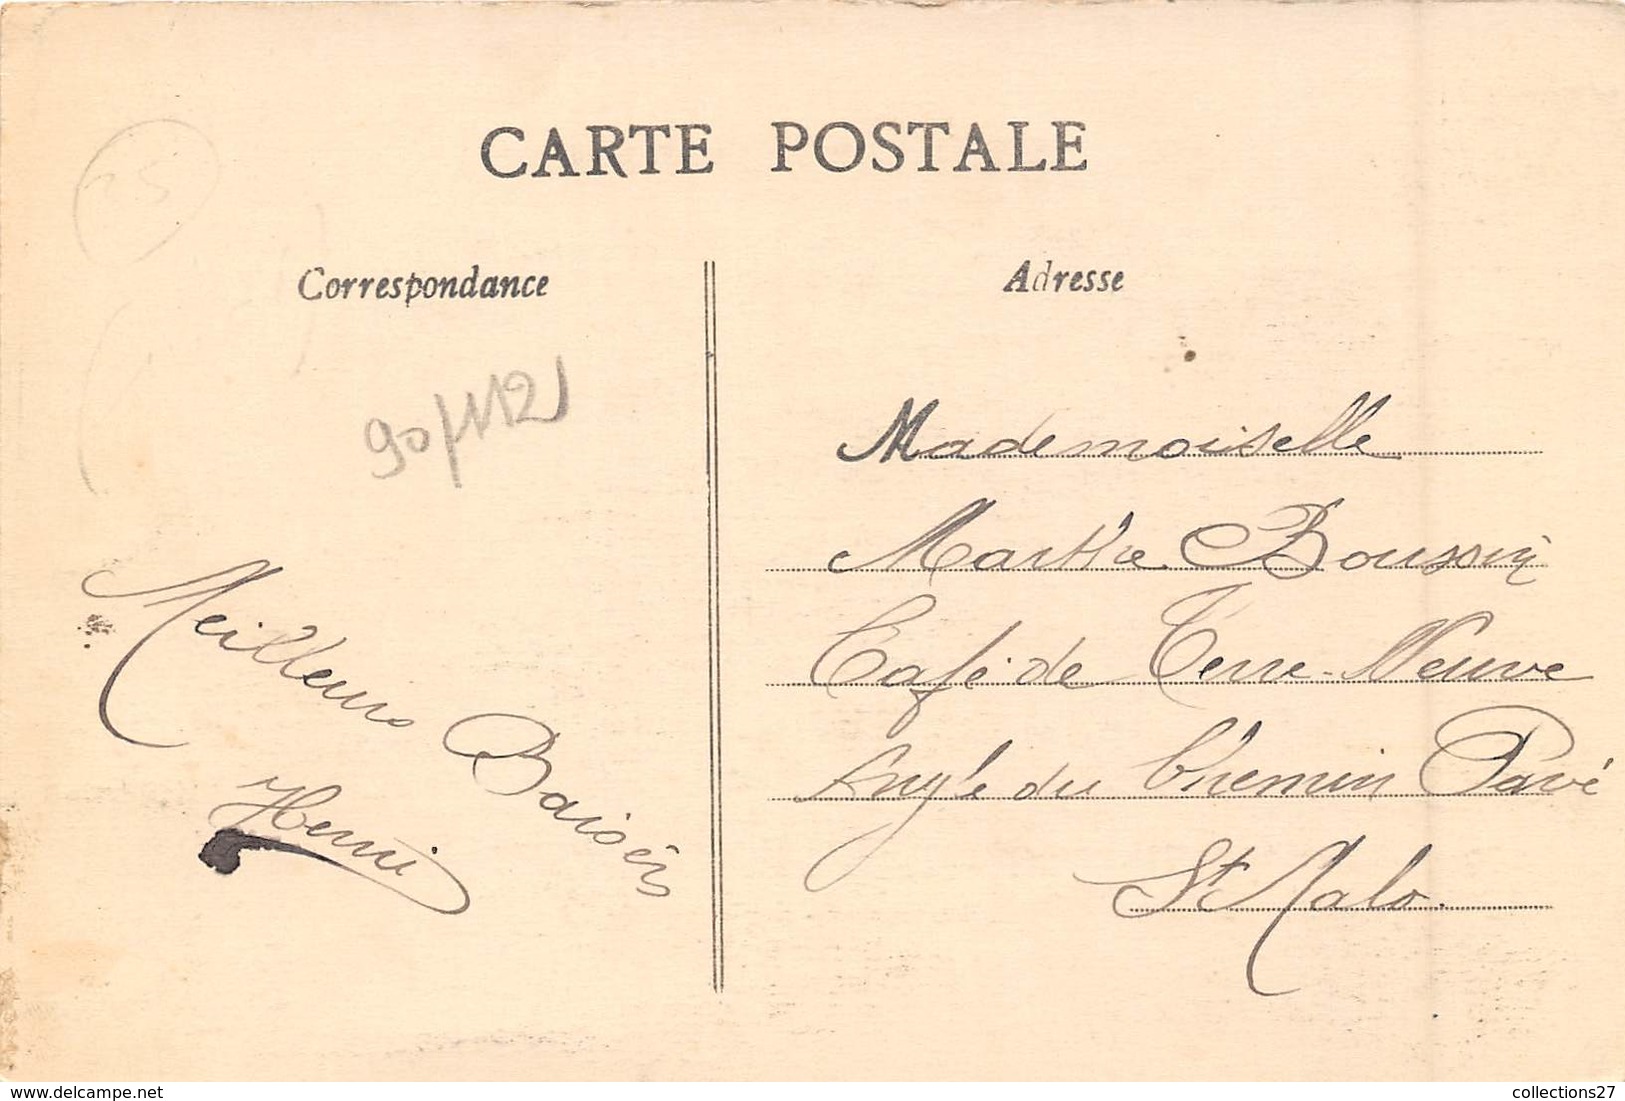 CARTE POSTALE
25
Correspondance
Adresse
90/112
Mademoiselle
Marthe Boussin
Café de Terre-Neuve
Angle du Chemin Pavé
St Malo.
Meilleurs Baisers
Henri
delcampe.net
collections27